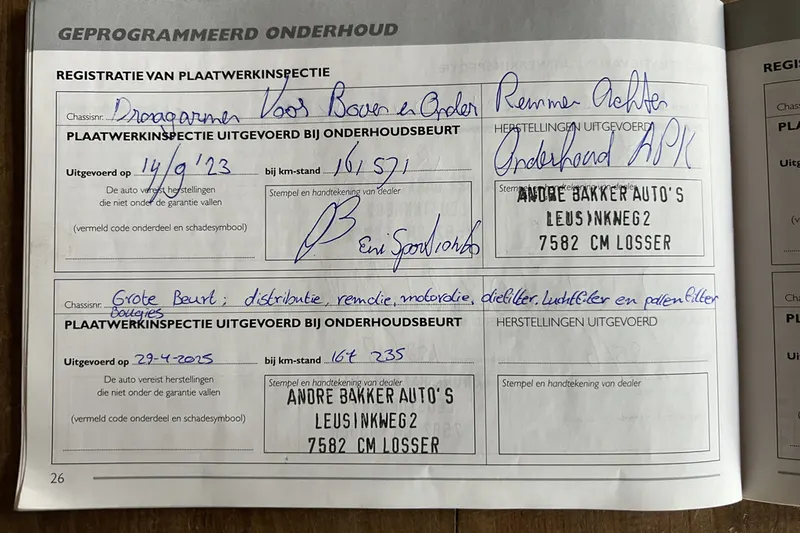 GEPROGRAMMEERD ONDERHOUD
REGISTRATIE VAN PLAATWERKINSPECTIE
Chassisnr. Draagarmen Voor Boven en Onder Remmen Achter
PLAATWERKINSPECTIE UITGEVOERD BIJ ONDERHOUDSBEURT
HERSTELLINGEN UITGEVOERD
Onderhoud APK
Uitgevoerd op 14/9 '23 bij km-stand 161,571
De auto vereist herstellingen
die niet onder de garantie vallen
(vermeld code onderdeel en schadesymbool)
Stempel en handtekening van dealer
Stempel en handtekening van dealer
ANDRE BAKKER AUTO'S
LEUSINKWEG2
7582 CM LOSSER
Chassisnr. Grote Beurt; distributie, remolie, motorolie, oliefilter, luchtfilter en pollenfilter
Bougies
PLAATWERKINSPECTIE UITGEVOERD BIJ ONDERHOUDSBEURT
HERSTELLINGEN UITGEVOERD
Uitgevoerd op 29-4-2025 bij km-stand 167 235
De auto vereist herstellingen
die niet onder de garantie vallen
(vermeld code onderdeel en schadesymbool)
Stempel en handtekening van dealer
ANDRE BAKKER AUTO'S
LEUSINKWEG2
7582 CM LOSSER
Stempel en handtekening van dealer
26
REGIS
Chass
PLA
Uitg
Chas
PL
Ui